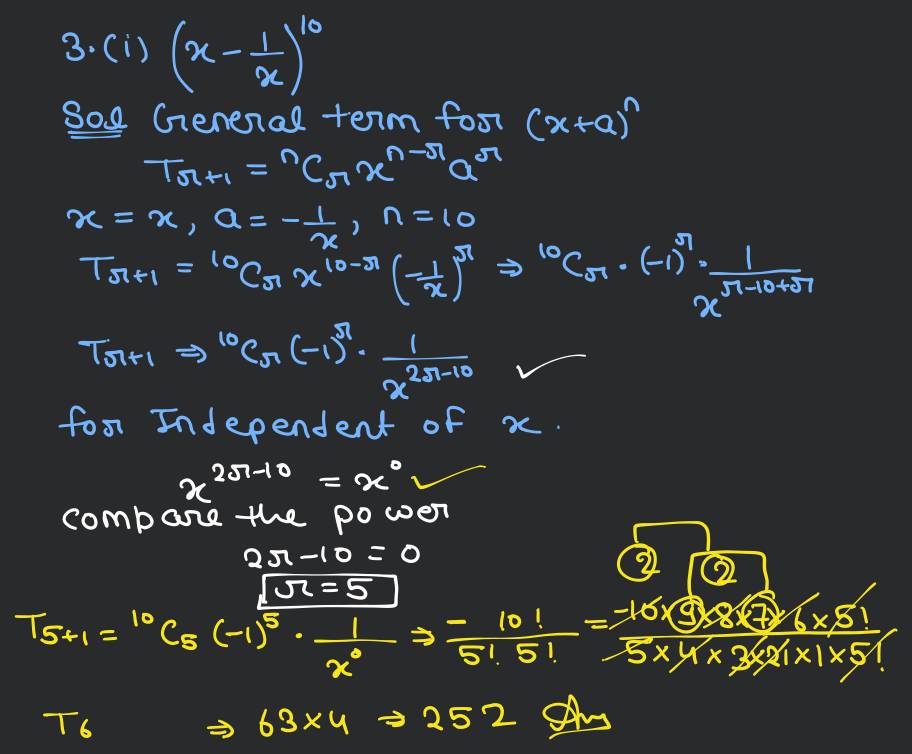 3.(i) (x - 1/x)^10
Sol General term for (x+a)^n
T_{r+1} = ^nC_r x^{n-r} a^r
x = x, a = -1/x, n = 10
T_{r+1} = ^10C_r x^{10-r} (-1/x)^r ⇒ ^10C_r · (-1)^r · 1/x^{r-10+r}
T_{r+1} ⇒ ^10C_r (-1)^r · 1/x^{2r-10} ✓
for Independent of x.
x^{2r-10} = x^0 ✓
compare the power
2r-10 = 0
r = 5
2 2
T_{5+1} = ^10C_5 (-1)^5 · 1/x^0 ⇒ - 10!/5! 5! = -10×9×8×7×6×5!/5×4×3×2×1×5!
T_6 ⇒ 63×4 ⇒ 252 Ans